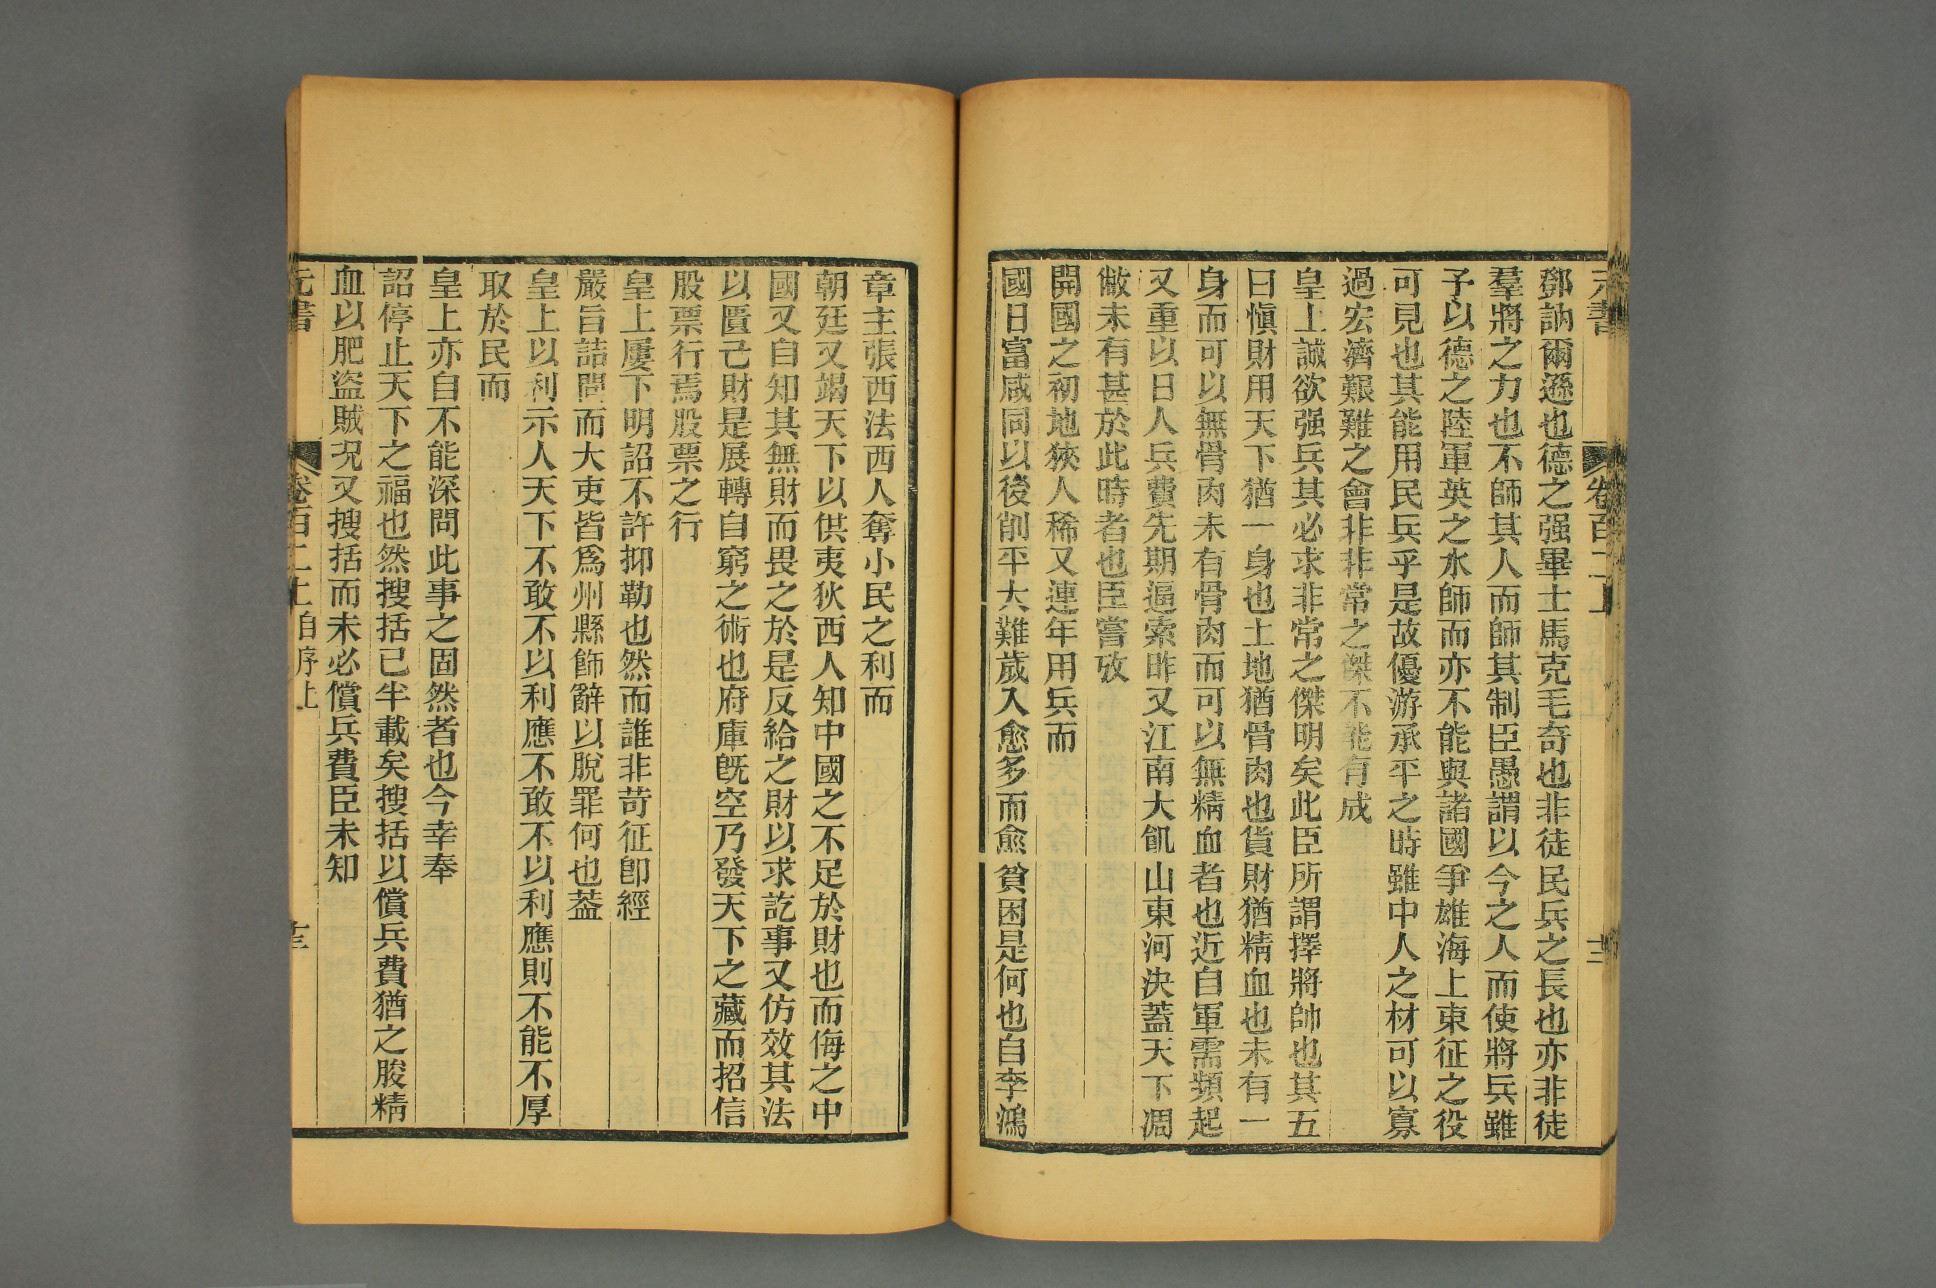 元書
卷百二上
十三
鄧訥爾遜也德之强畢士馬克毛奇也非徒民兵之長也亦非徒
羣將之力也不師其人而師其制臣愚謂以今之人而使將兵雖
予以德之陸軍英之水師而亦不能與諸國爭雄海上東征之役
可見也其能用民兵乎是故優游承平之時雖中人之材可以寡
過宏濟艱難之會非非常之傑不能有成
皇上誠欲强兵其必求非常之傑明矣此臣所謂擇將帥也其五
曰愼財用天下猶一身也土地猶骨肉也貨財猶精血也未有一
身而可以無骨肉未有骨肉而可以無精血者也近自軍需頻起
又重以日人兵費先期逼索昨又江南大飢山東河決蓋天下凋
敝未有甚於此時者也臣嘗攷
開國之初地狹人稀又連年用兵而
國日富咸同以後削平大難歲入愈多而愈貧困是何也自李鴻
章主張西法西人奪小民之利而
朝廷又竭天下以供夷狄西人知中國之不足於財也而侮之中
國又自知其無財而畏之於是反給之財以求訖事又仿效其法
以匱己財是展轉自窮之術也府庫旣空乃發天下之藏而招信
股票行焉股票之行
皇上屢下明詔不許抑勒也然而誰非苛征卽經
嚴旨詰問而大吏皆爲州縣飾辭以脫罪何也葢
皇上以利示人天下不敢不以利應不敢不以利應則不能不厚
取於民而
皇上亦自不能深問此事之固然者也今幸奉
詔停止天下之福也然搜括已半載矣搜括以償兵費猶之朘精
血以肥盜賊況又搜括而未必償兵費臣未知
元書
卷百二上自序上
十三